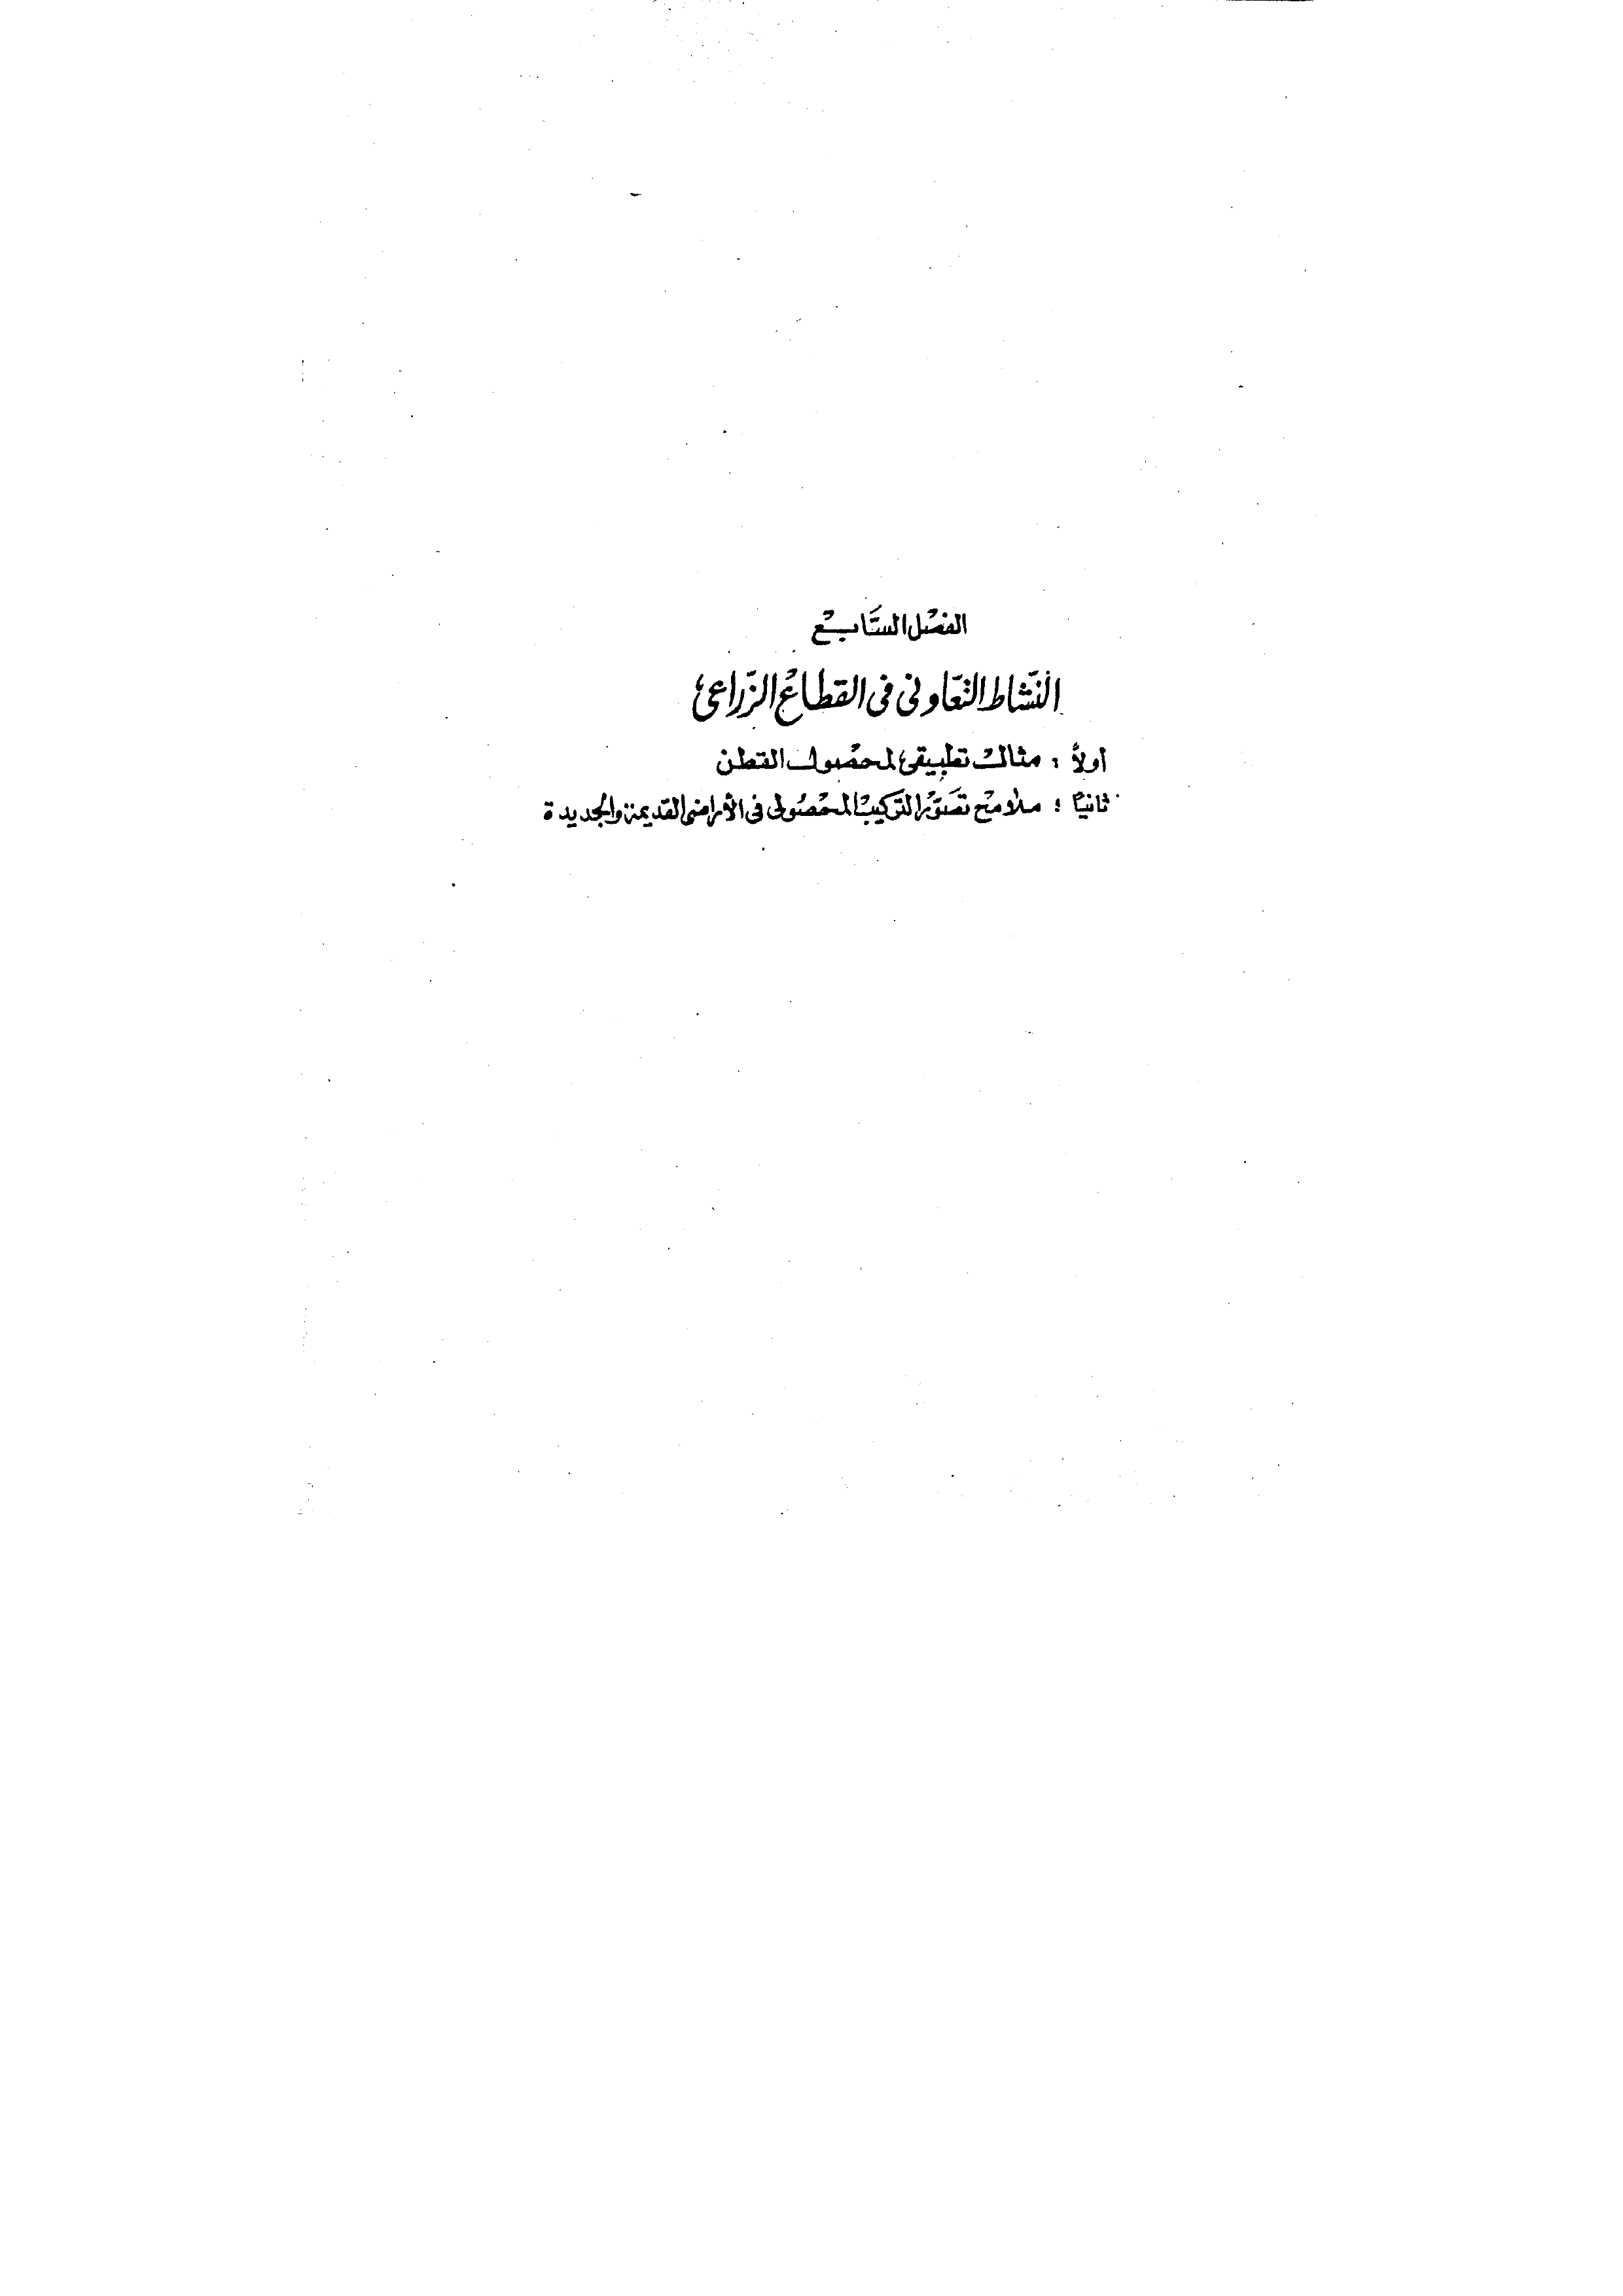 الفصل السابع
النشاط التعاونى فى القطاع الزراعى
أولاً : مثال تطبيقى لمحصول القطن
ثانيًا : ملامح تصور التركيب المحصولى فى الأراضى القديمة والجديدة